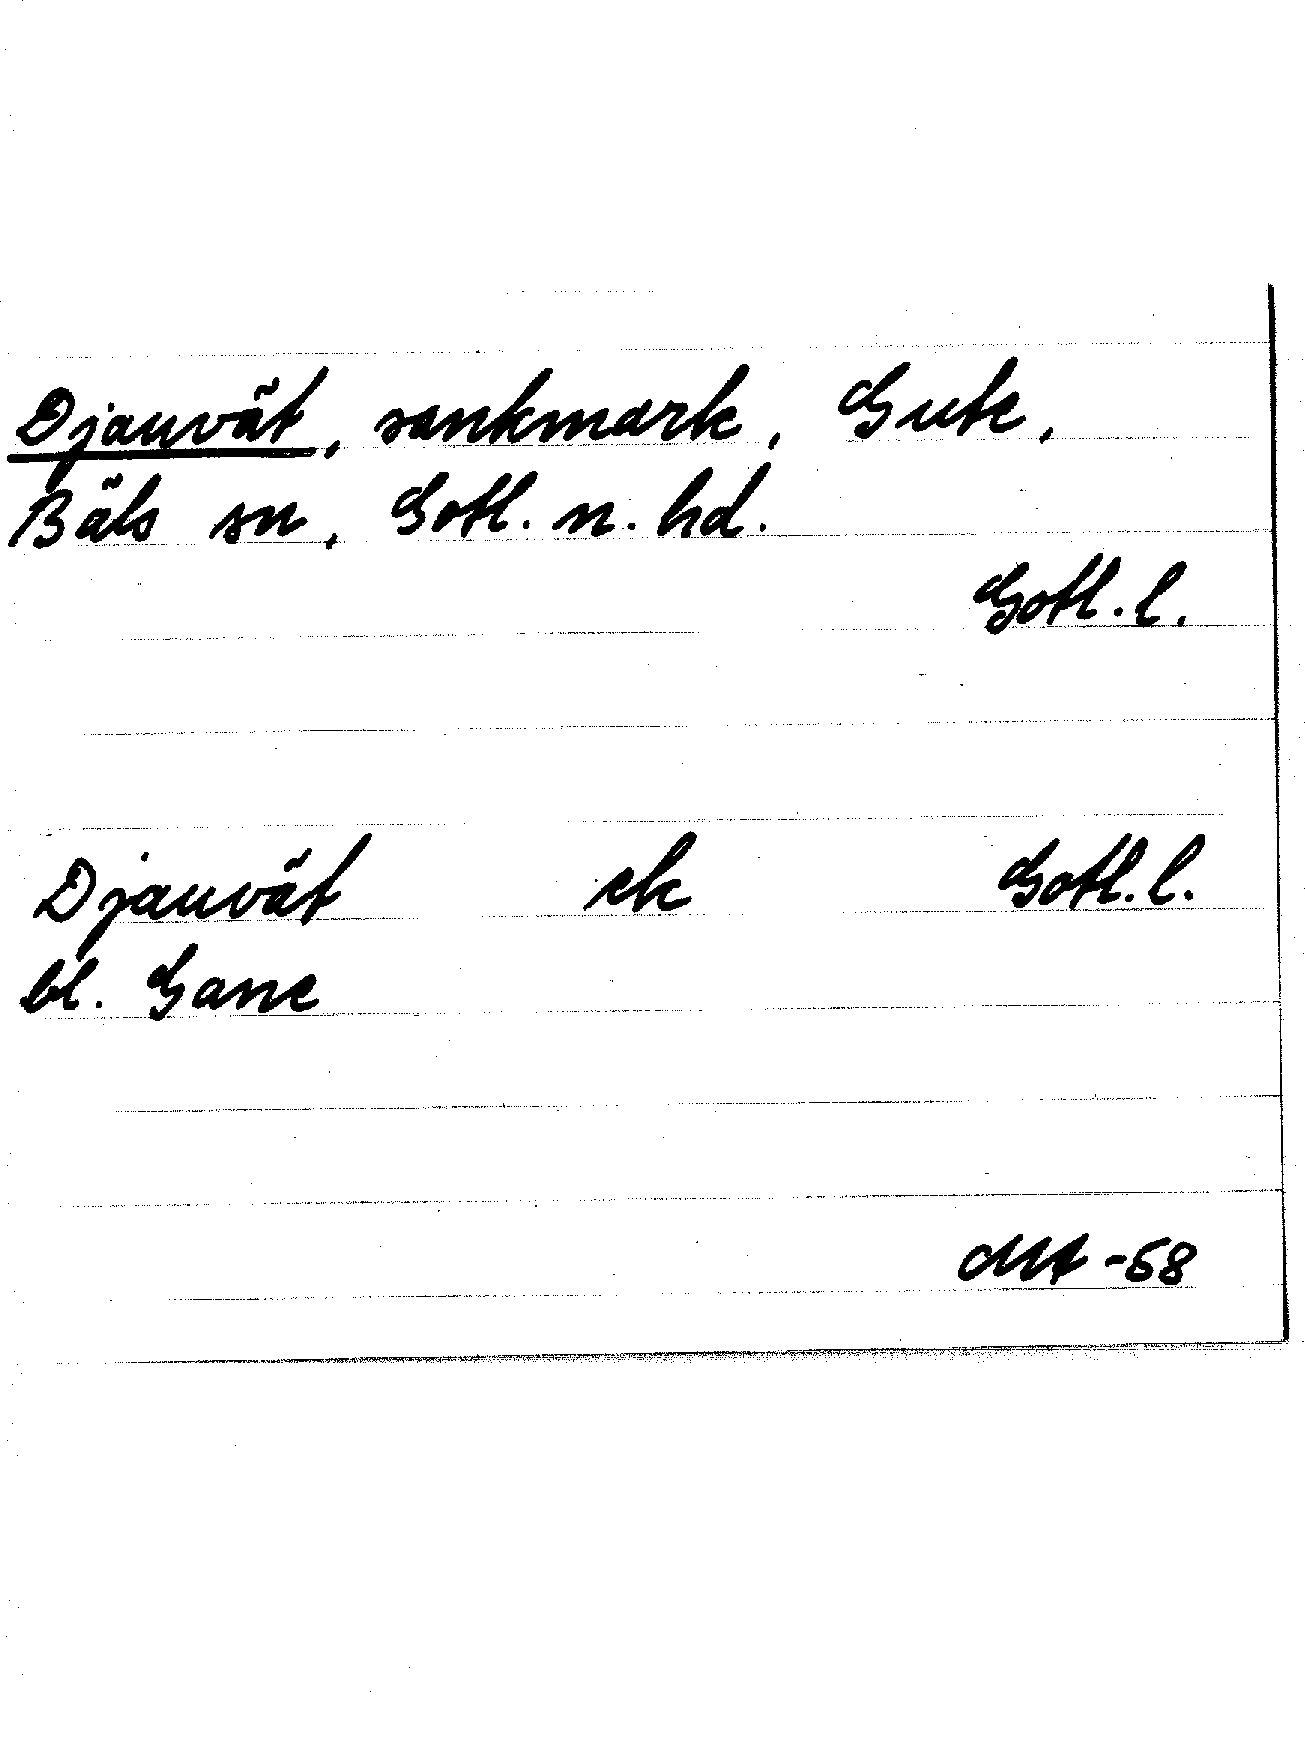 Djauvät, sankmark, Gute,
Bäls sn, Gotl. n. hd.
Gotl. l.
Djauvät ek Gotl. l.
bl. Gane
MA -68